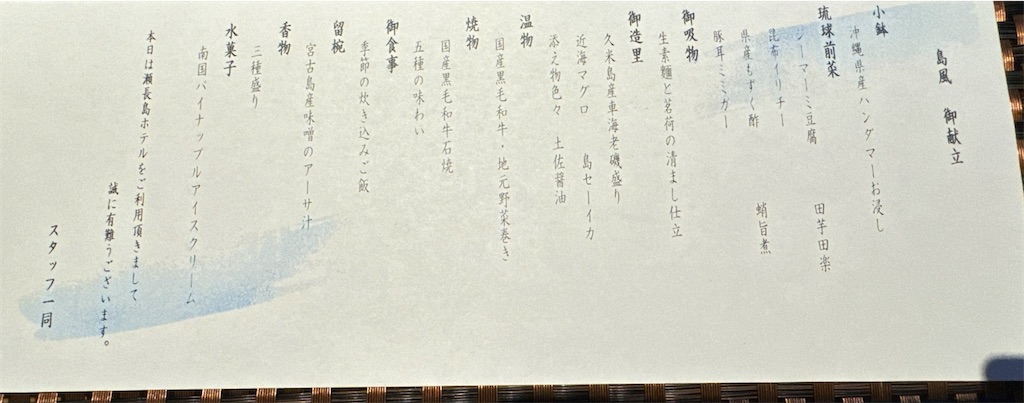 島風 御献立
小鉢
沖縄県産ハンダマーお浸し
琉球前菜
ジーマーミ豆腐 田芋田楽
昆布イリチー
県産もずく酢 蛸旨煮
豚耳ミミガー
御吸物
生素麵と茗荷の清まし仕立
御造里
久米島産車海老磯盛り
近海マグロ 島セーイカ
添え物色々 土佐醤油
温物
国産黒毛和牛・地元野菜巻き
焼物
国産黒毛和牛石焼
五種の味わい
御食事
季節の炊き込みご飯
留椀
宮古島産味噌のアーサ汁
香物
三種盛り
水菓子
南国パイナップルアイスクリーム
本日は瀬長島ホテルをご利用頂きまして
誠に有難うございます。
スタッフ一同